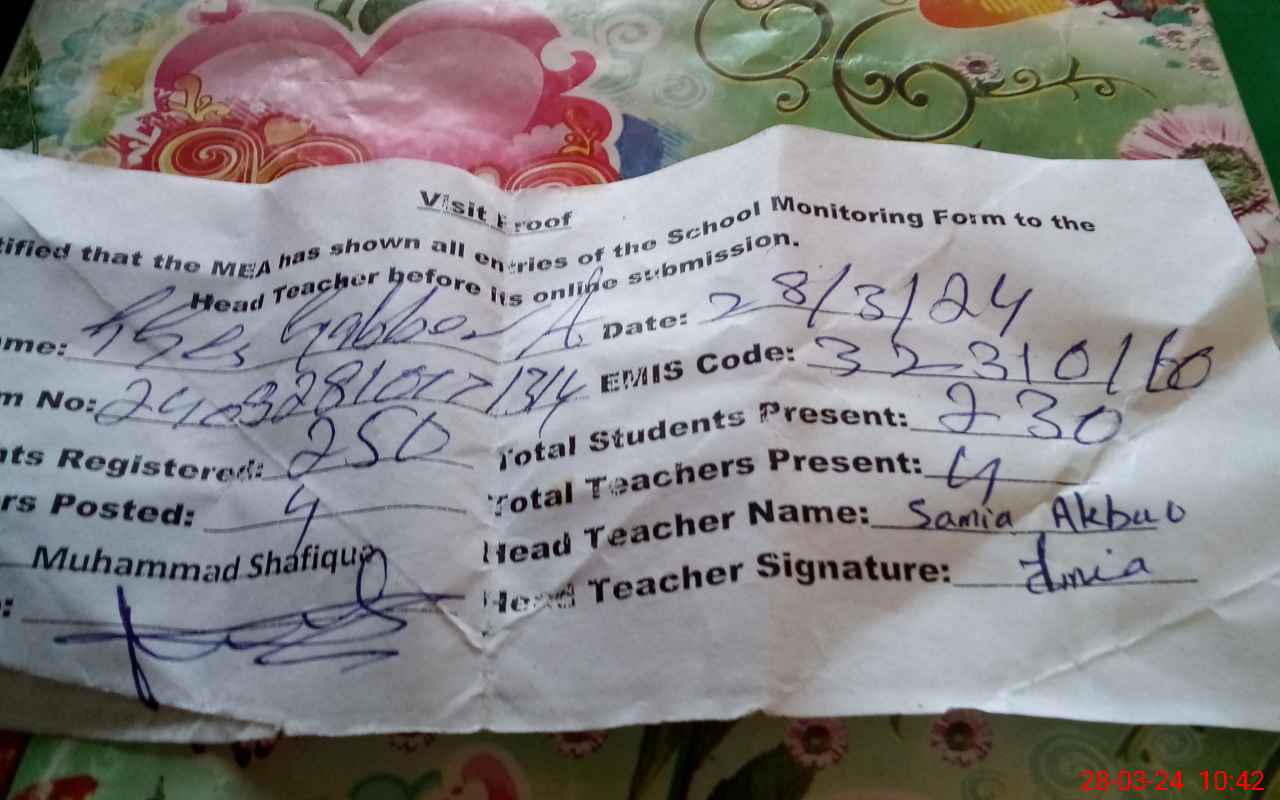 Visit Proof
tified that the MEA has shown all entries of the School Monitoring Form to the
Head Teacher before its online submission.
me: Date: 28/3/24
m No: EMIS Code: 32310160
nts Registered: 250 Total Students Present: 230
rs Posted: 4 Total Teachers Present: 4
Muhammad Shafique Head Teacher Name: Samia Akbar
: Head Teacher Signature:
28-03-24 10:42